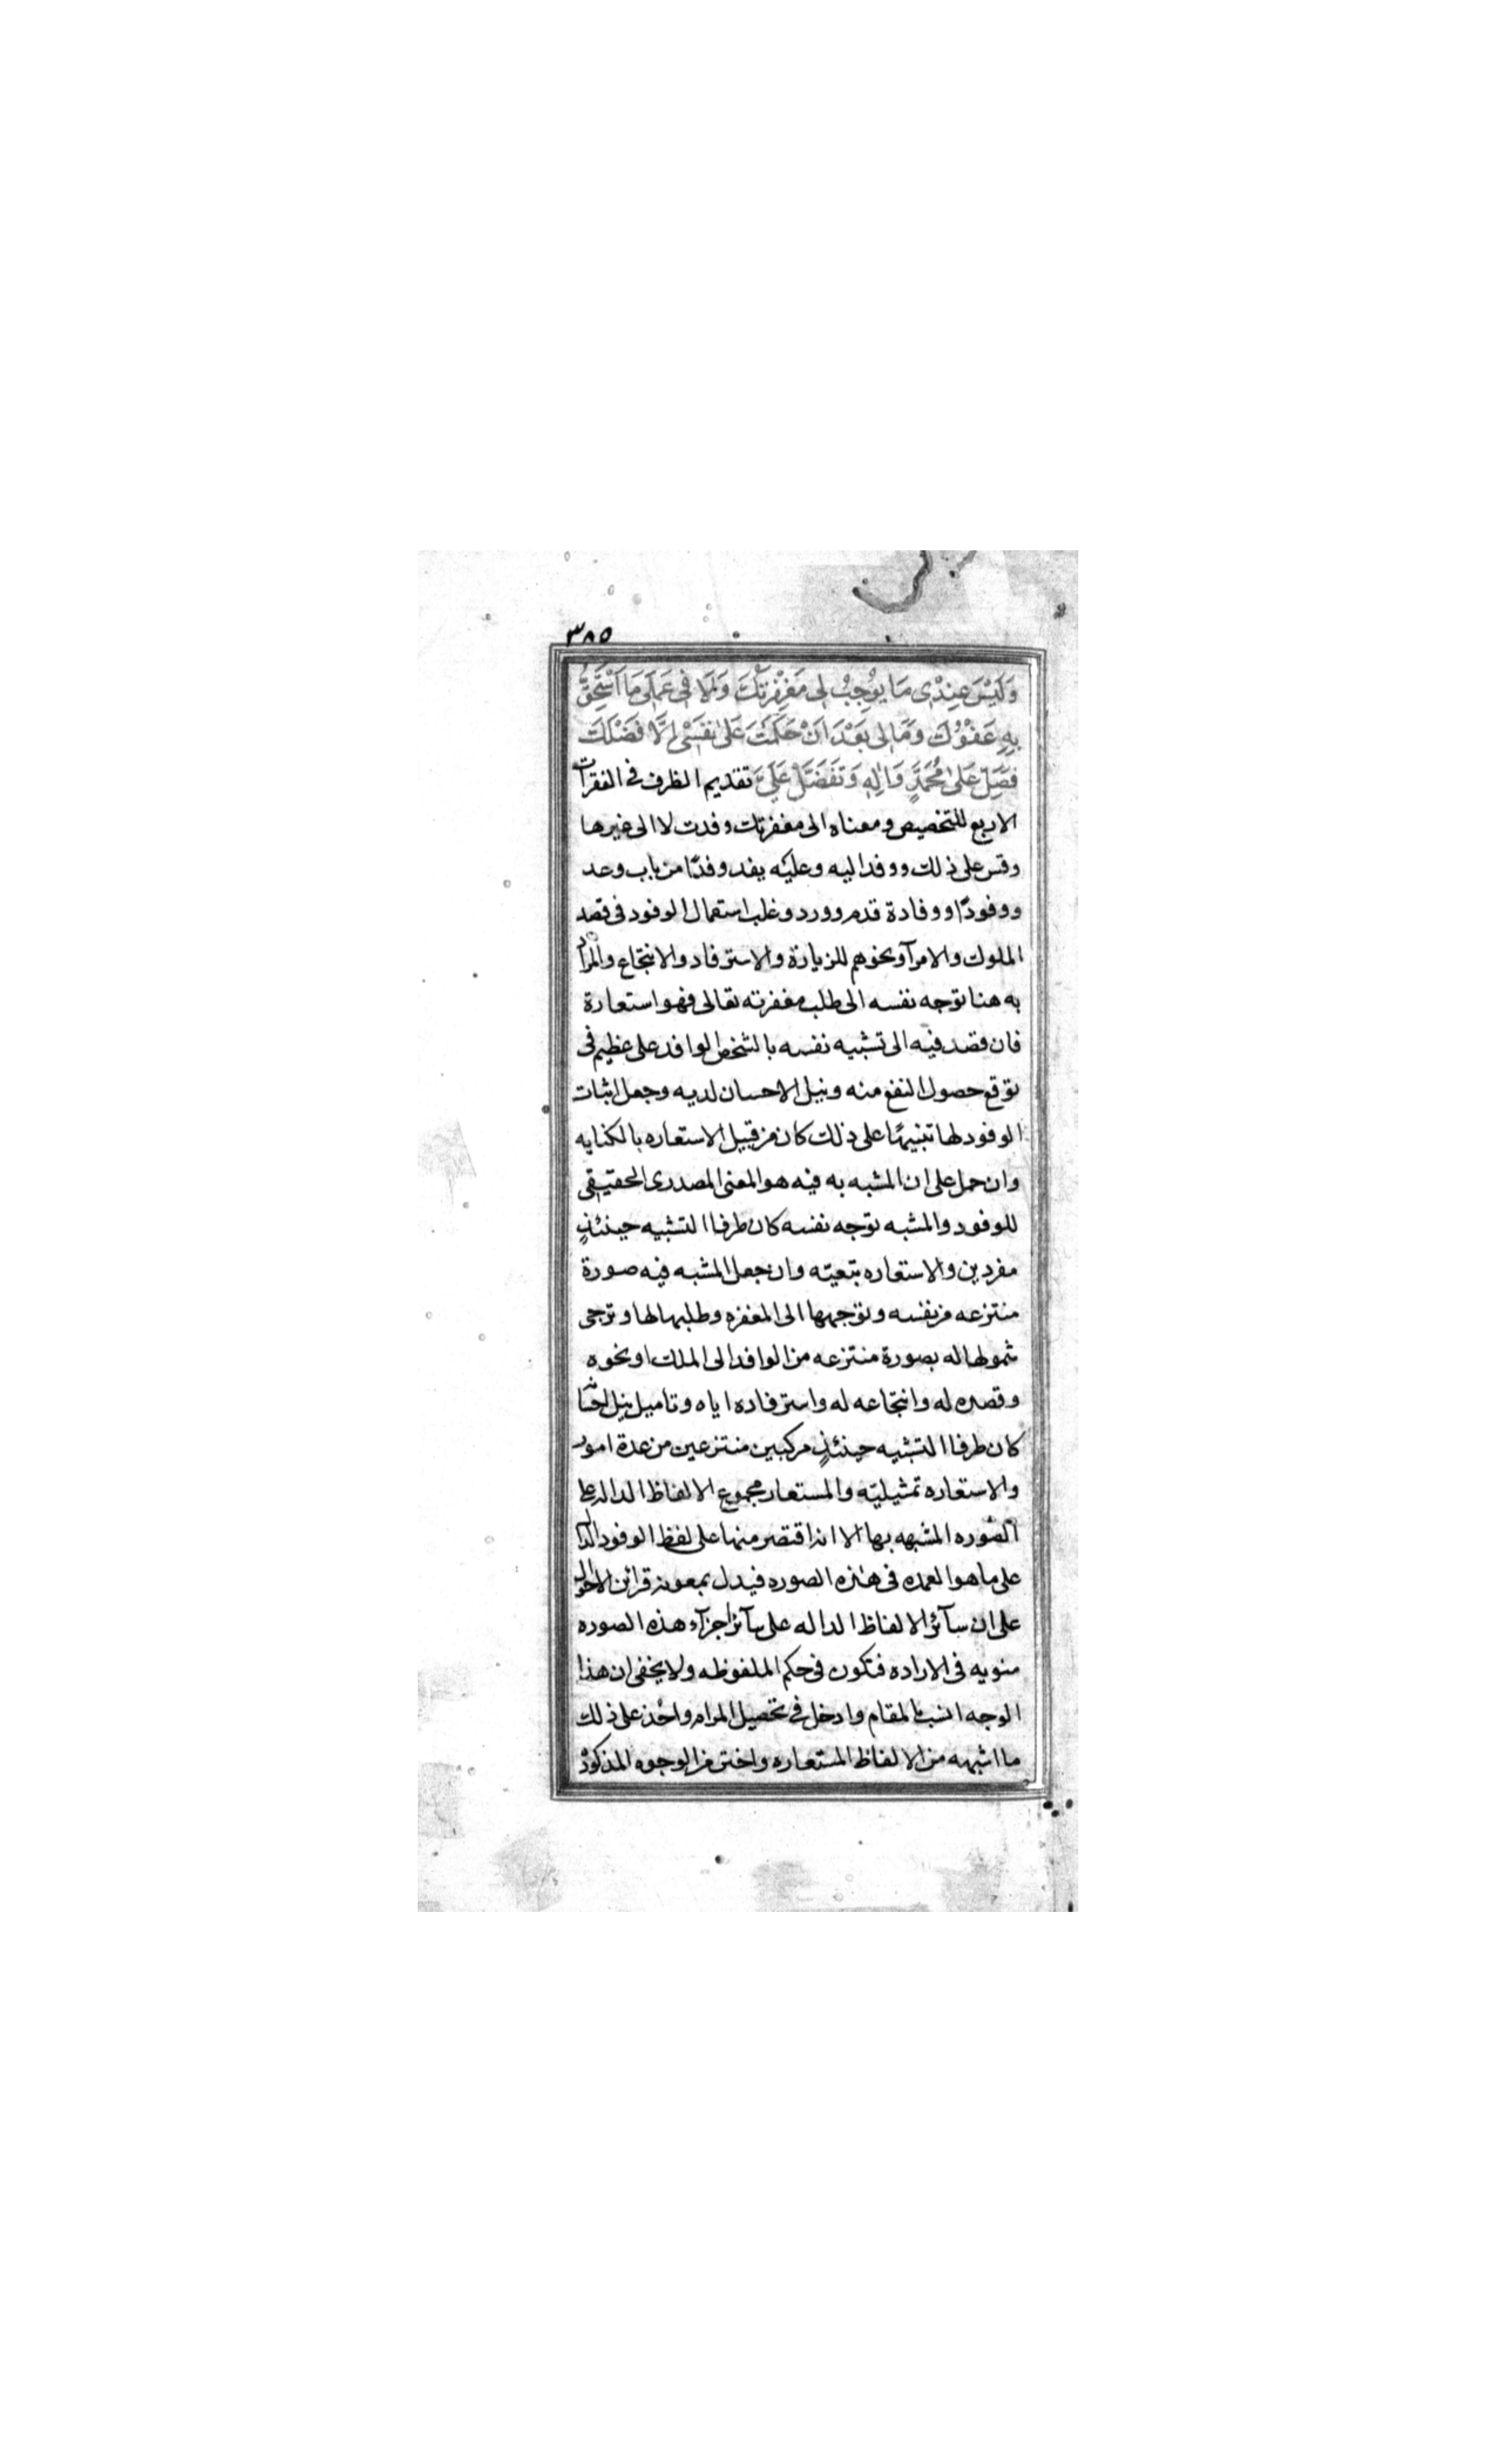 ٣٨٥
وَلَيْسَ عِنْدِي مَا يُوْجِبُ لِي مَغْفِرَتَكَ وَلَا فِي عَمَلِي مَا اَسْتَحِقُّ
بِهِ عَفْوَكَ وَمَالِي بَعْدَ اَنْ حَكَمْتَ عَلَىٰ نَفْسِيْ اِلَّا فَضْلُكَ
فَصَلِّ عَلَىٰ مُحَمَّدٍ وَاٰلِهِ وَتَفَضَّلْ عَلَيَّ تقديم الظرف فى الفقرات
الاربع للتخصيص ومعناه الى مغفرتك وفدت لا الى غيرها
وقس على ذلك ووفد اليه وعليه يفد وفدًا من باب وعد
ووفودًا ووفادة قدم وورد وغلب استعمال الوفود فى قصد
الملوك والامرآ ونحوهم للزيارة والاسترفاد والانتجاع والمراد
به هنا توجه نفسه الى طلب مغفرته تعالى فهو استعارة
فان قصد فيه الى تشبيه نفسه بالشخص الوافد على عظيم فى
توقع حصول النفع منه ونيل الاحسان لديه وجعل اثبات
الوفود لها تنبيهًا على ذلك كان من قبيل الاستعاره بالكنايه
وان حمل على ان المشبه به فيه هو المعنى المصدرى الحقيقى
للوفود والمشبه توجه نفسه كان طرفا التشبيه حينئذٍ
مفردين والاستعاره تبعيّه وان جعل المشبه فيه صورة
منتزعه من نفسه وتوجهها الى المغفره وطلبها لها وترجى
شمولها له بصورة منتزعه من الوافد الى الملك او نحوه
وقصده له وانتجاعه له واسترفاده اياه وتاميل نيل احسانه
كان طرفا التشبيه حينئذٍ مركبين منتزعين من عدة امور
والاستعاره تمثيليّه والمستعار مجموع الالفاظ الداله على
الصّوره المشبهه بها الا انه اقتصر منها على لفظ الوفود الدال
على ما هو العمده فى هذه الصوره فيدل بمعونه قرائن الاحوال
على ان سآئر الالفاظ الداله على سآئر اجزآء هذه الصوره
منويه فى الاراده فتكون فى حكم الملفوظه ولا يخفى ان هذا
الوجه انسب بالمقام وادخل فى تحصيل المرام واحْذ على ذلك
ما اشبهه من الالفاظ المستعاره واختر من الوجوه المذكورة